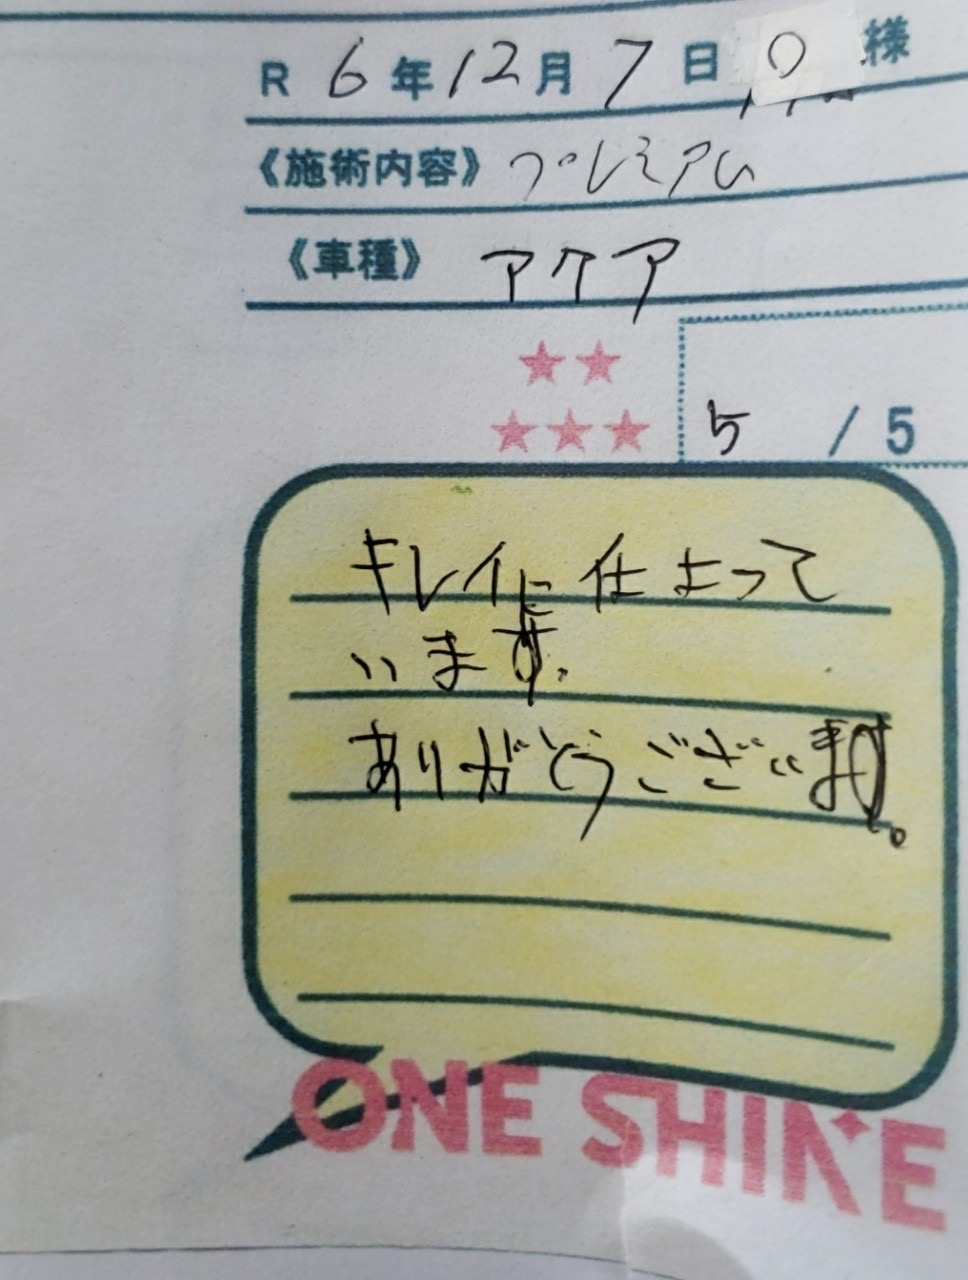 R 6年12月7日 O様
《施術内容》 プレミアム
《車種》 アクア
5 / 5
キレイに仕上って
います。
ありがとうございます。
ONE SHINE